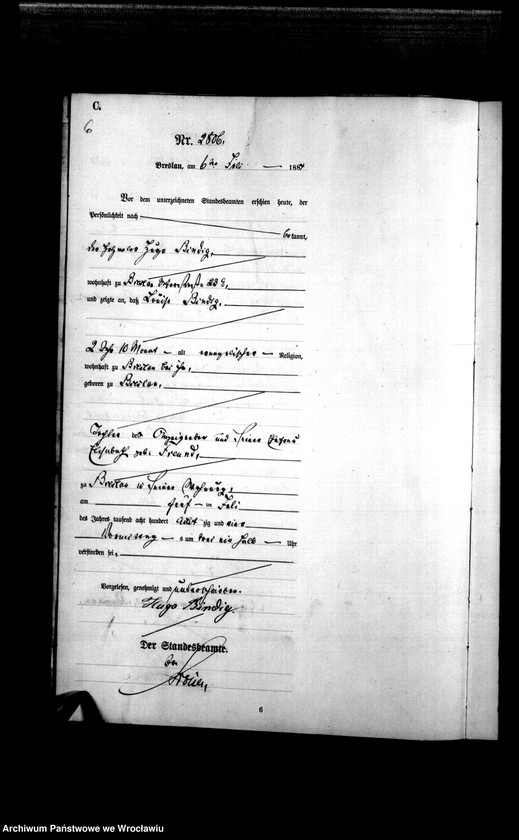 C.
6
Nr. 2806.
Breslau, am 6ten Juli 1884
Vor dem unterzeichneten Standesbeamten erschien heute, der
Persönlichkeit nach
bekannt,
der Hugo Bindig,
wohnhaft zu Breslau
und zeigte an, daß Louise Bindig,
2 Jahr 10 Monat alt evangelischer Religion,
wohnhaft zu Breslau bei ihm,
geboren zu Breslau,
Tochter des Anzeigenden und seiner Ehefrau
Elisabeth geb. Freund,
zu Breslau in seiner Wohnung,
am fünf ten Juli
des Jahres tausend acht hundert achtzig und vier
Vormittags um drei ein halb Uhr
verstorben sei.
Vorgelesen, genehmigt und unterschrieben.
Hugo Bindig.
Der Standesbeamte.
6
Archiwum Państwowe we Wrocławiu